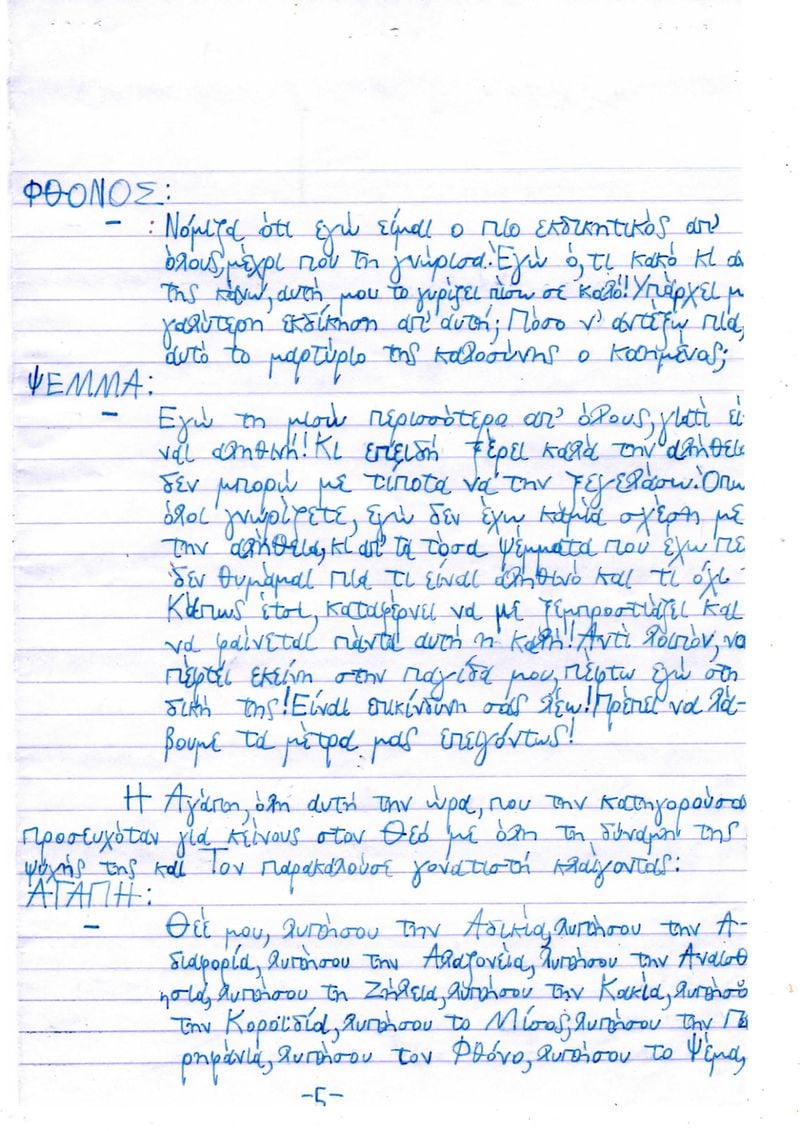 ΦΘΟΝΟΣ:
- : Νόμιζα ότι εγώ είμαι ο πιο εκδικητικός απ'
όλους, μέχρι που τη γνώρισα! Εγώ ό,τι κακό κι α
της κάνω, αυτή μου το γυρίζει πίσω σε καλό! Υπάρχει μ
γαλύτερη εκδίκηση απ' αυτή; Πόσο ν' αντέξω πια,
αυτό το μαρτύριο της καλοσύνης ο καημένος;
ΨΕΜΜΑ:
- Εγώ τη μισώ περισσότερο απ' όλους, γιατί εί
ναι αληθινή! Κι επειδή ξέρει καλά την αλήθεια
δεν μπορώ με τίποτα να την ξεγελάσω. Όπω
όλοι γνωρίζετε, εγώ δεν έχω καμία σχέση με
την αλήθεια, κι απ' τα τόσα ψέμματα που έχω πε
δεν θυμάμαι πια τι είναι αληθινό και τι όχι.
Κάπως έτσι, καταφέρνει να με ξεμπροστιάζει και
να φαίνεται πάντα αυτή η καλή! Αντί λοιπόν, να
πέφτει εκείνη στην παγίδα μου, πέφτω εγώ στη
δική της! Είναι επικίνδυνη σας λέω! Πρέπει να λά-
βουμε τα μέτρα μας επειγόντως!
Η Αγάπη, όλη αυτή την ώρα, που την κατηγορούσα
προσευχόταν για κείνους στον Θεό με όλη τη δύναμη της
ψυχής της και Τον παρακαλούσε γονατιστή κλαίγοντας:
ΑΓΑΠΗ:
- Θεέ μου, λυπήσου την Αδικία, λυπήσου την Α-
διαφορία, λυπήσου την Αλαζονεία, λυπήσου την Αναισθ
ησία, λυπήσου τη Ζήλεια, λυπήσου την Κακία, λυπήσο
την Κοροϊδία, λυπήσου το Μίσος, λυπήσου την Πε
ρηφάνια, λυπήσου τον Φθόνο, λυπήσου το Ψέμα,
-5-